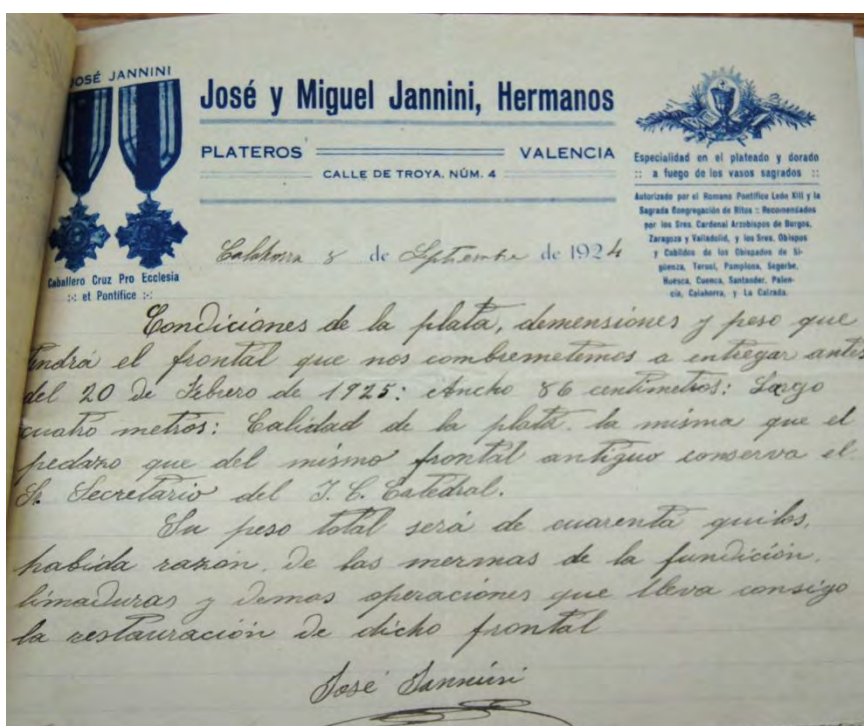 JOSÉ JANNINI
José y Miguel Jannini, Hermanos
PLATEROS VALENCIA
CALLE DE TROYA. NÚM. 4
Caballero Cruz Pro Ecclesia
:-: et Pontífice :-:
Especialidad en el plateado y dorado
:: a fuego de los vasos sagrados ::
Autorizado por el Romano Pontífice León XIII y la
Sagrada Congregación de Ritos :: Recomendados
por los Sres. Cardenal Arzobispos de Burgos,
Zaragoza y Valladolid, y los Sres. Obispos
y Cabildos de los Obispados de Si-
güenza, Teruel, Pamplona, Segorbe,
Huesca, Cuenca, Santander, Palen-
cia, Calahorra, y La Calzada.
Calahorra 8 de Septiembre de 1924
Condiciones de la plata, demensiones y peso que
tindrá el frontal que nos combremetemos a entregar antes
del 20 de Febrero de 1925: Ancho 86 centimetros: Largo
cuatro metros: Calidad de la plata. la misma que el
pedazo que del mismo frontal antiguo conserva el
Sr. Secretario del I. C. Catedral.
Su peso total será de cuarenta quilos,
habida razón, de las mermas de la fundición,
limaduras y demas operaciones que lleva consigo
la restauración de dicho frontal
José Jannini